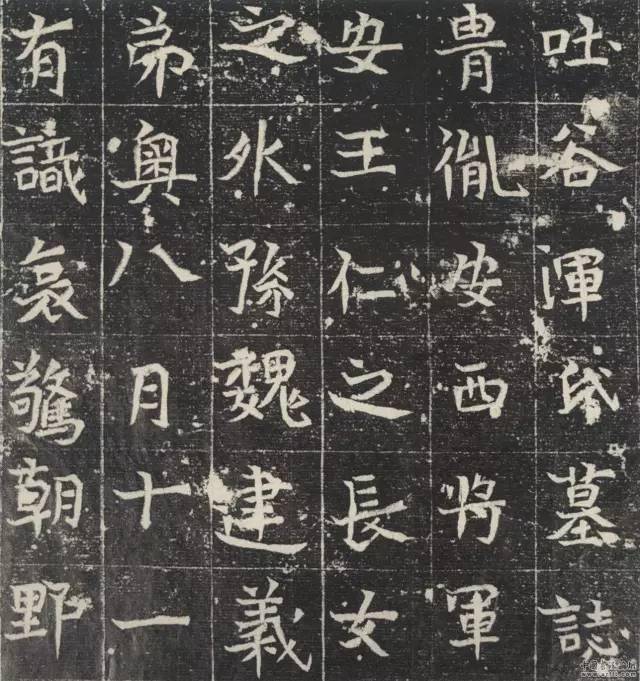 吐谷渾氏墓誌
胄胤安西将軍
安王仁之長女
之外孫魏建義
弟奥八月十一
有識哀驚朝野